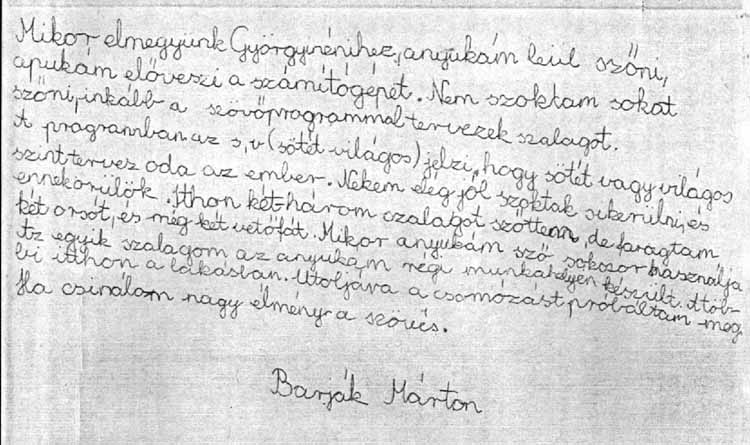 Mikor elmegyünk Györgyinénihez, anyukám leül szőni,
apukám előveszi a számítógépét. Nem szoktam sokat
szőni, inkább a szövőprogrammal tervezek szalagot.
A programban az s, v (sötét világos) jelzi, hogy sötét vagy világos
színt tervez oda az ember. Nekem elég jól szoktak sikerülni, és
ennek örülök. Itthon két-három szalagot szőttem, de faragtam
két orsót, és még két vetőfát. Mikor anyukám sző sokszor használja
Az egyik szalagom az anyukám régi munkahelyén készült. A töb-
bi itthon a lakásban. Utoljára a csomózást próbáltam meg.
Ha csinálom nagy élmény a szövés.
Barják Márton